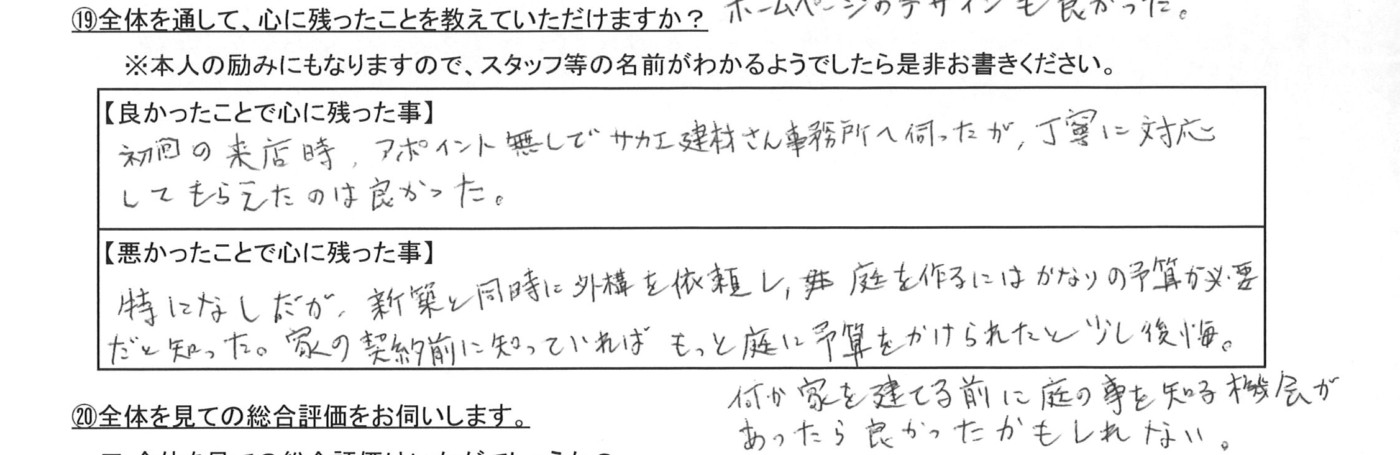 ホームページのデザインも良かった。
⑲全体を通して、心に残ったことを教えていただけますか？
※本人の励みにもなりますので、スタッフ等の名前がわかるようでしたら是非お書きください。
【良かったことで心に残った事】
初回の来店時、アポイント無しでサカエ建材さん事務所へ伺ったが、丁寧に対応
してもらえたのは良かった。
【悪かったことで心に残った事】
特になしだが、新築と同時に外構を依頼し、庭を作るにはかなりの予算が必要
だと知った。家の契約前に知っていればもっと庭に予算をかけられたと少し後悔。
何か家を建てる前に庭の事を知る機会が
あったら良かったかもしれない。
⑳全体を見ての総合評価をお伺いします。